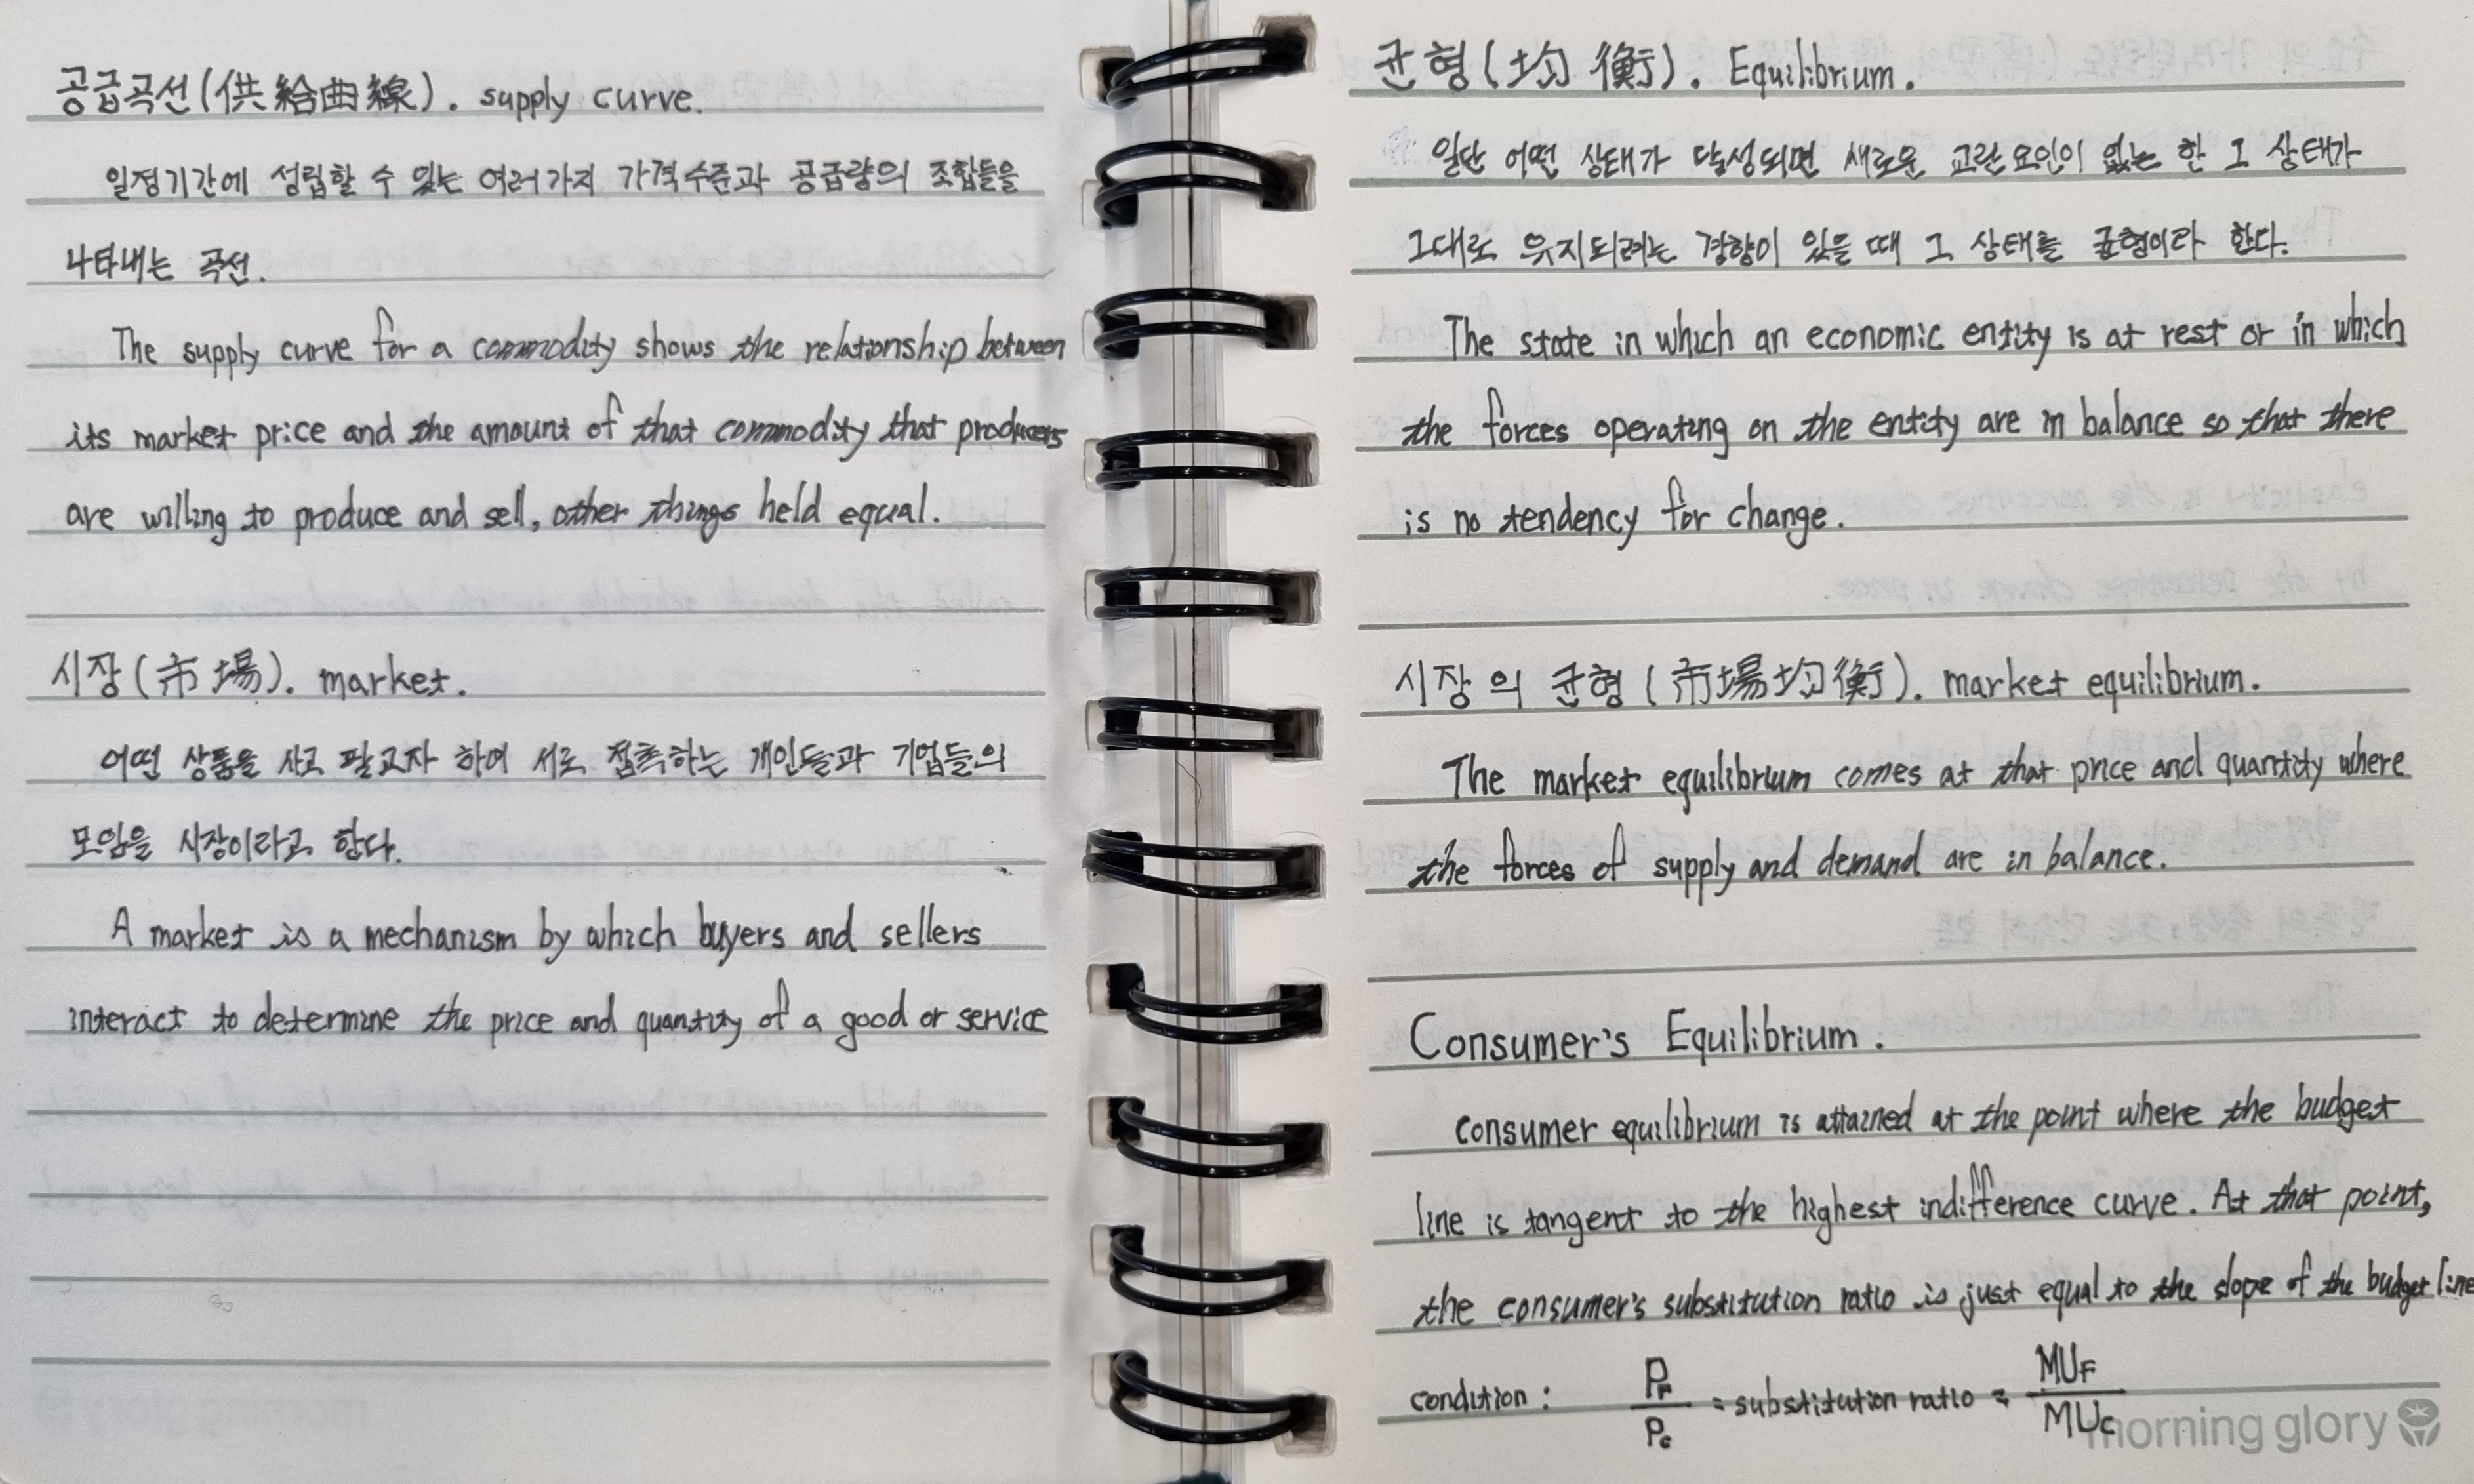 공급곡선(供給曲線). supply curve.
일정기간에 성립할 수 있는 여러가지 가격수준과 공급량의 조합들을
나타내는 곡선.
The supply curve for a commodity shows the relationship between
its market price and the amount of that commodity that producers
are willing to produce and sell, other things held equal.
시장(市場). market.
어떤 상품을 사고 팔고자 하여 서로 접촉하는 개인들과 기업들의
모임을 시장이라고 한다.
A market is a mechanism by which buyers and sellers
interact to determine the price and quantity of a good or service
균형(均衡). Equilibrium.
일단 어떤 상태가 달성되면 새로운 교란요인이 없는 한 그 상태가
그대로 유지되려는 경향이 있을 때 그 상태를 균형이라 한다.
The state in which an economic entity is at rest or in which
the forces operating on the entity are in balance so that there
is no tendency for change.
시장의 균형(市場均衡). market equilibrium.
The market equilibrium comes at that price and quantity where
the forces of supply and demand are in balance.
Consumer's Equilibrium.
consumer equilibrium is attained at the point where the budget
line is tangent to the highest indifference curve. At that point,
the consumer's substitution ratio is just equal to the slope of the budget line
condition: P_F/P_C = substitution ratio = MU_F/MU_C
morning glory